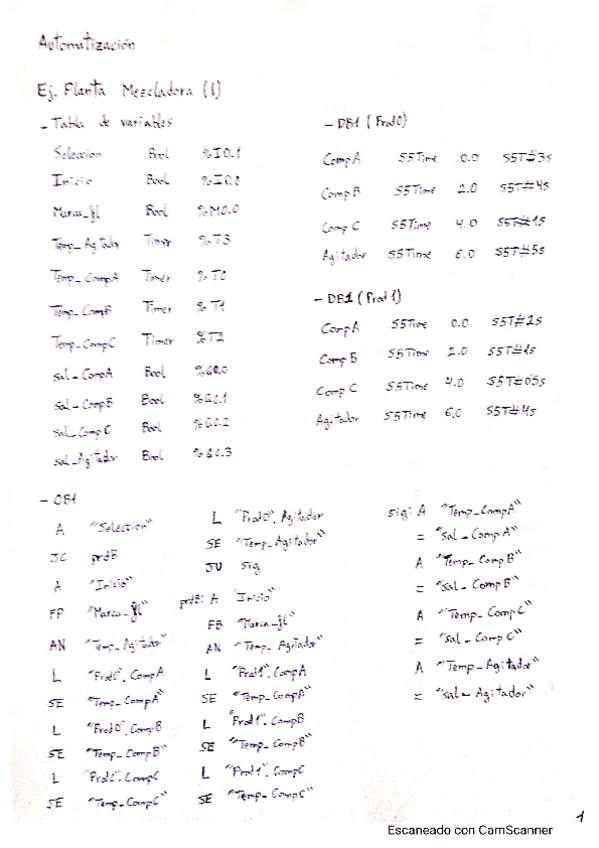 Automatización
Ej. Planta Mezcladora (1)
- Tabla de variables
Seleccion Bool %I0.1
Inicio Bool %I0.0
Marca_fl Bool %M0.0
Temp_Agitador Timer %T3
Temp_CompA Timer %T0
Temp_CompB Timer %T1
Temp_CompC Timer %T2
sal_CompA Bool %Q0.0
sal_CompB Bool %Q0.1
sal_CompC Bool %Q0.2
sal_Agitador Bool %Q0.3
- DB1 (Prod0)
CompA S5Time 0.0 S5T#3s
CompB S5Time 2.0 S5T#4s
CompC S5Time 4.0 S5T#1s
Agitador S5Time 6.0 S5T#5s
- DB1 (Prod1)
CompA S5Time 0.0 S5T#2s
CompB S5Time 2.0 S5T#1s
CompC S5Time 4.0 S5T#05s
Agitador S5Time 6.0 S5T#4s
- OB1
A "Seleccion"
JC prdB
A "Inicio"
FP "Marca_fl"
AN "Temp_Agitador"
L "Prod0".CompA
SE "Temp_CompA"
L "Prod0".CompB
SE "Temp_CompB"
L "Prod0".CompC
SE "Temp_CompC"
L "Prod0".Agitador
SE "Temp_Agitador"
JU sig
prdB: A "Inicio"
FP "Marca_fl"
AN "Temp_Agitador"
L "Prod1".CompA
SE "Temp_CompA"
L "Prod1".CompB
SE "Temp_CompB"
L "Prod1".CompC
SE "Temp_CompC"
sig: A "Temp_CompA"
= "sal_CompA"
A "Temp_CompB"
= "sal_CompB"
A "Temp_CompC"
= "sal_CompC"
A "Temp_Agitador"
= "sal_Agitador"
1
Escaneado con CamScanner